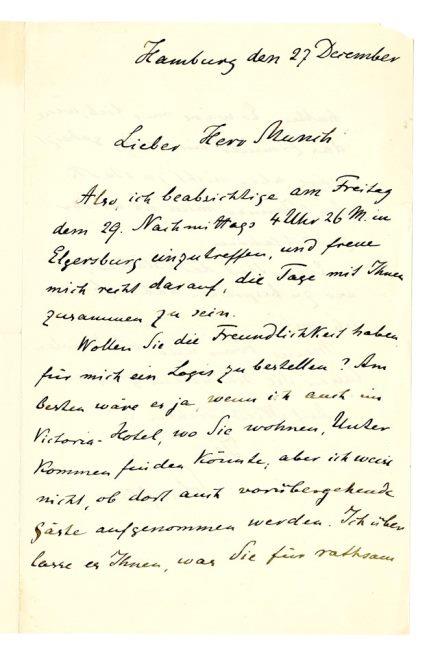 Hamburg den 27 December
Lieber Herr Munch
Also, ich beabsichtige am Freitag
dem 29. Nachmittags 4 Uhr 26 M. in
Elgersburg einzutreffen, und freue
mich recht darauf, die Tage mit Ihnen
zusammen zu sein.
Wollen Sie die Freundlichkeit haben
für mich ein Logis zu bestellen? Am
besten wäre es ja, wenn ich auch im
Victoria-Hotel, wo Sie wohnen, Unter
kommen finden könnte, aber ich weiss
nicht, ob dort auch vorübergehende
Gäste aufgenommen werden. Ich über
lasse es Ihnen, was Sie für rathsam